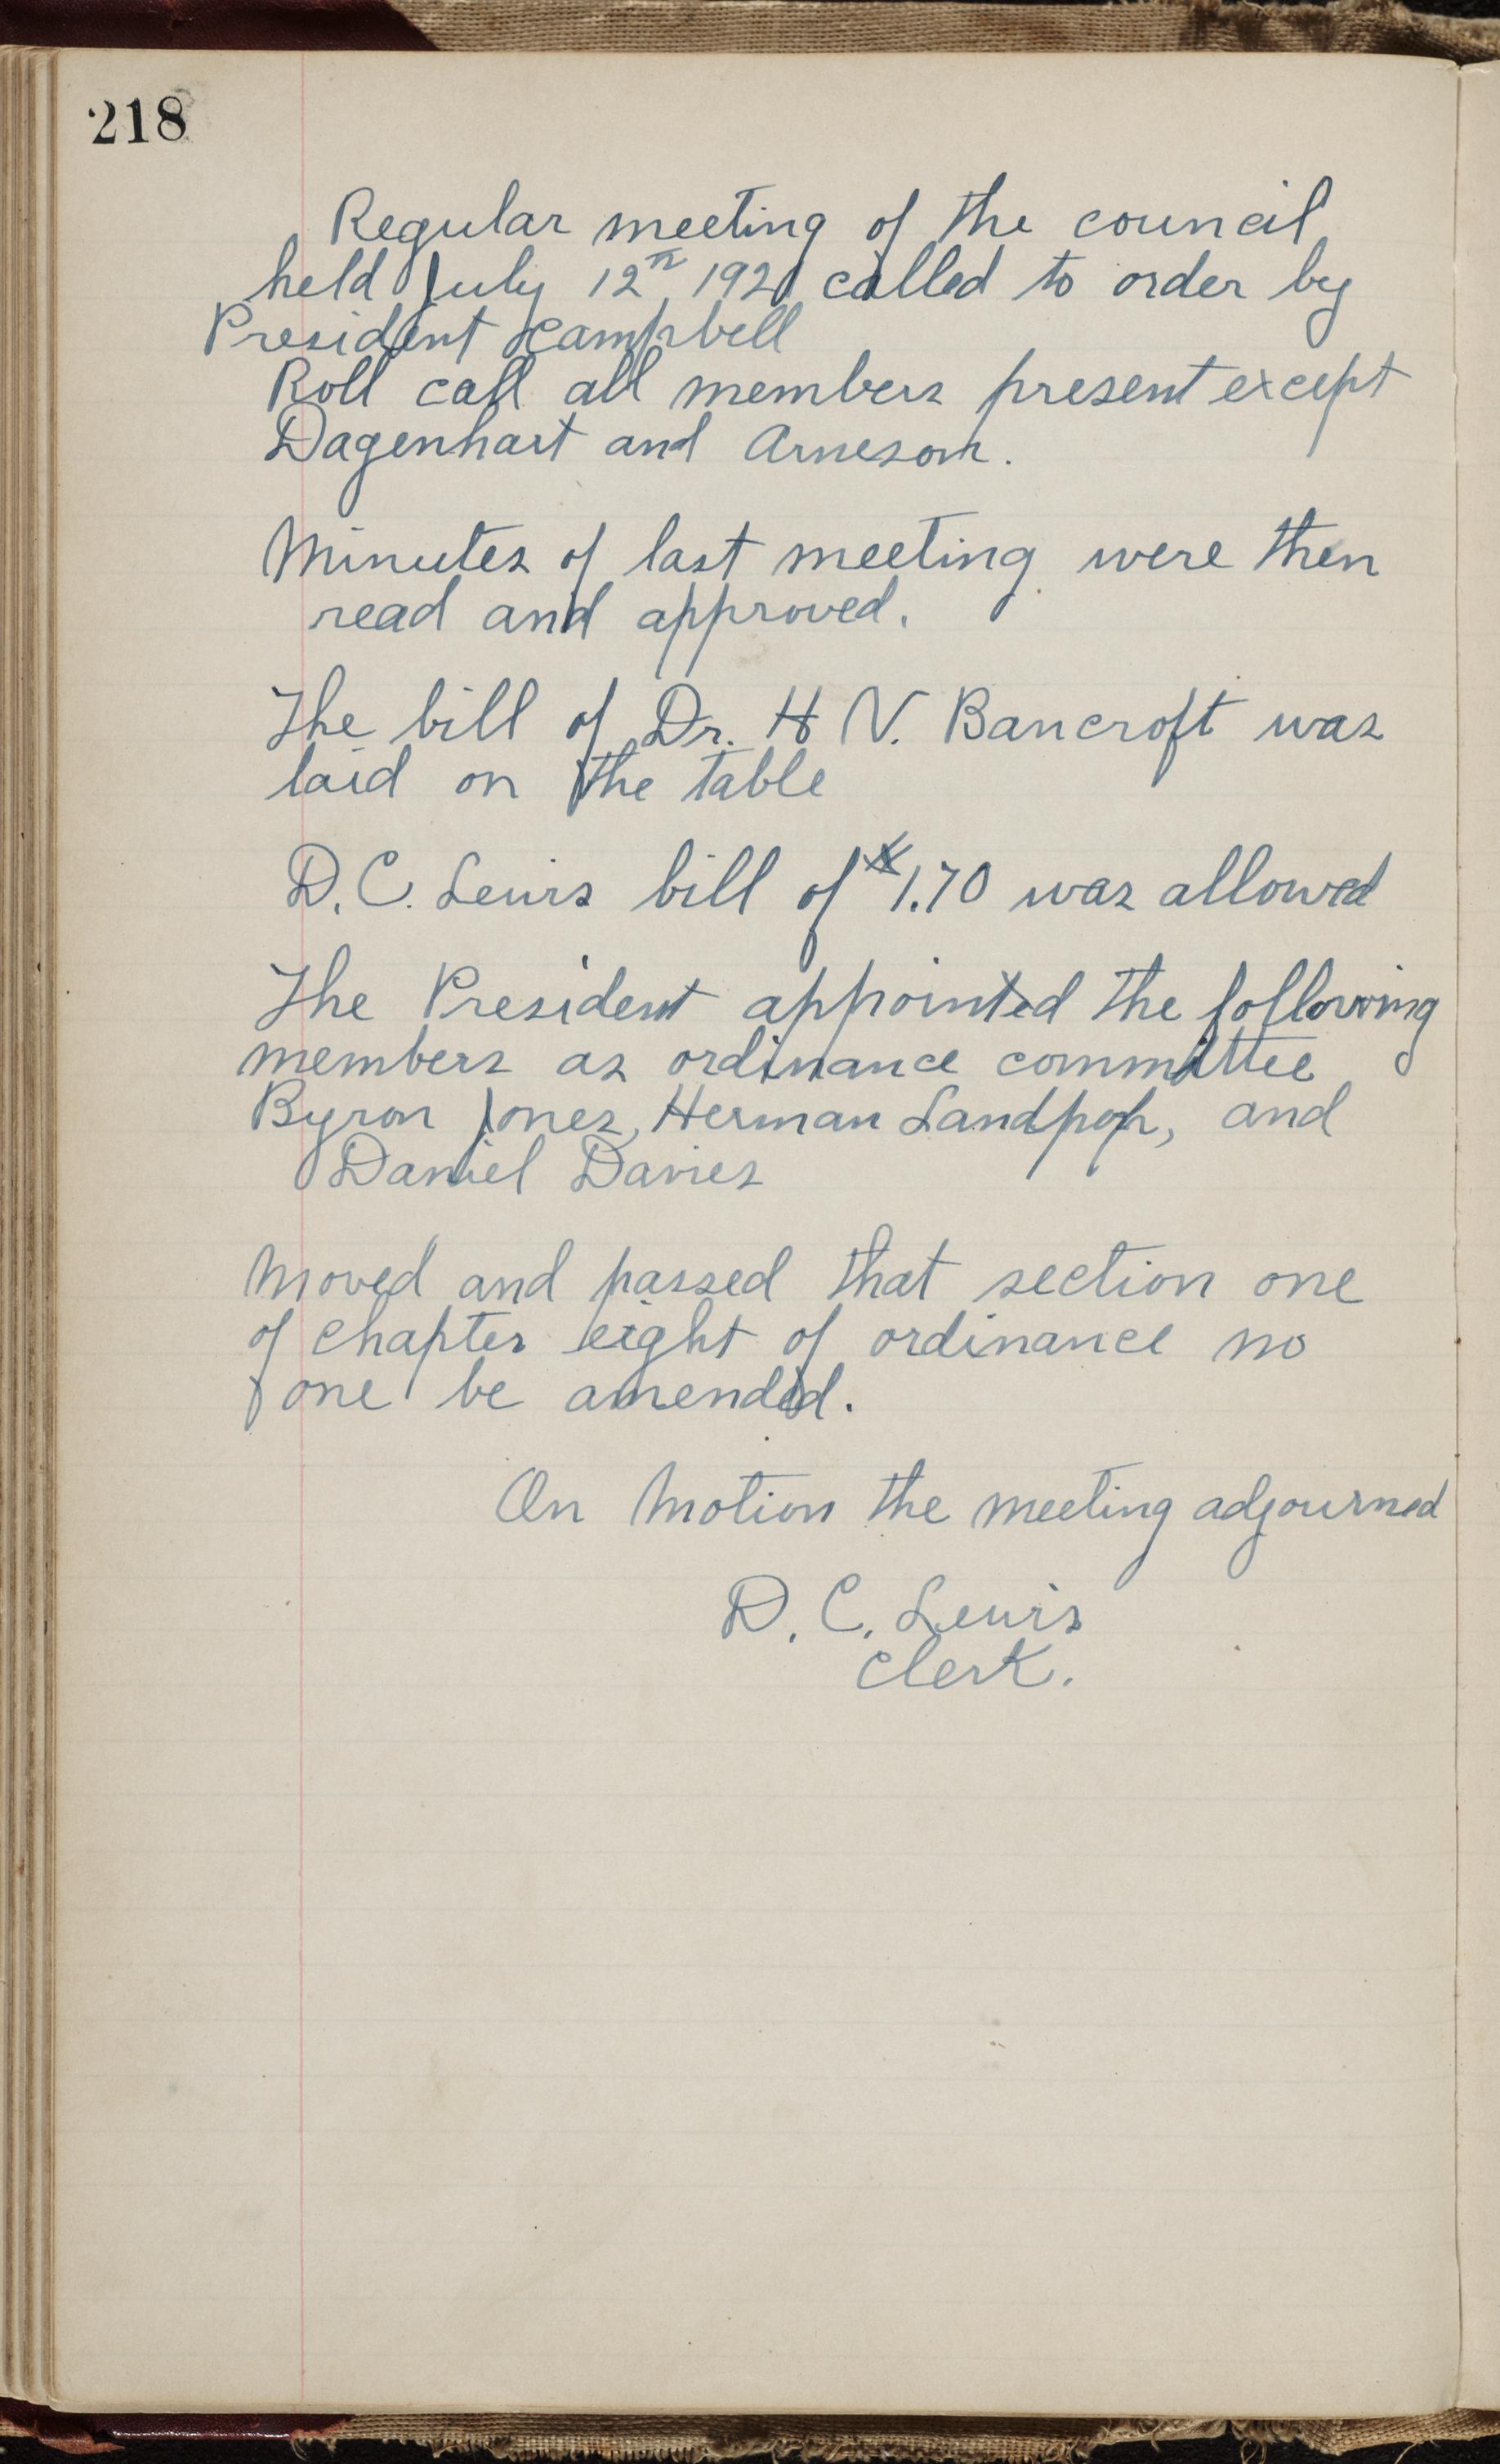 218
Regular meeting of the council
held July 12th, 1920 called to order by
President Campbell
Roll call all members present except
Dagenhart and Arneson.
Minutes of last meeting were then
read and approved.
The bill of Dr. H V. Bancroft was
laid on the table
D.C. Lewis bill of $1.70 was allowed
The President appointed the following
members as ordinance committee
Byron Jones, Herman Landpop, and
Daniel Davies
Moved and passed that section one
of chapter eight of ordinance no
one be amended.
On Motion the meeting adjourned
D. C. Lewis
Clerk.